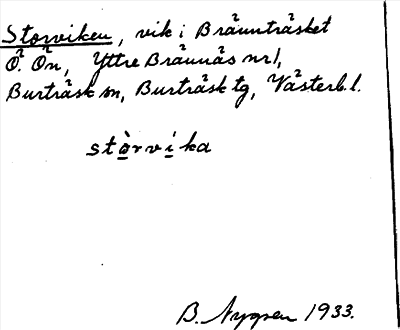 Storviken, vik i Bräunträsket
Ö. Ön, Yttre Bräunäs nr 1,
Burträsk sn, Burträsk tg, Västerb. l.
stòrvika
B. Nygren 1933.